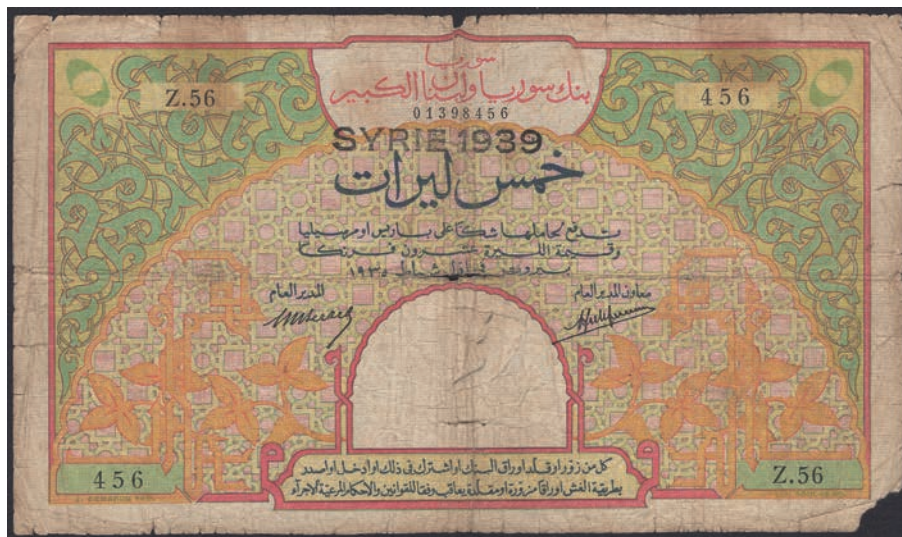 سوريا
بنك سوريا ولبنان الكبير
Z.56
01398456
456
SYRIE 1939
خمس ليرات
تدفع لحاملها شكا على باريس او مرسيليا
وقيمة الليرة عشرون فرنكا
بيروت في اول شباط ١٩٣٥
المدير العام
معاون المدير العام
كل من زور او قلد اوراق البنك او اشترك في ذلك او ادخل او اصدر
بطريقة الغش اوراقا مزورة او مقلدة يعاقب وفقا للقوانين والاحكام المرعية الاجرآء
456
Z.56